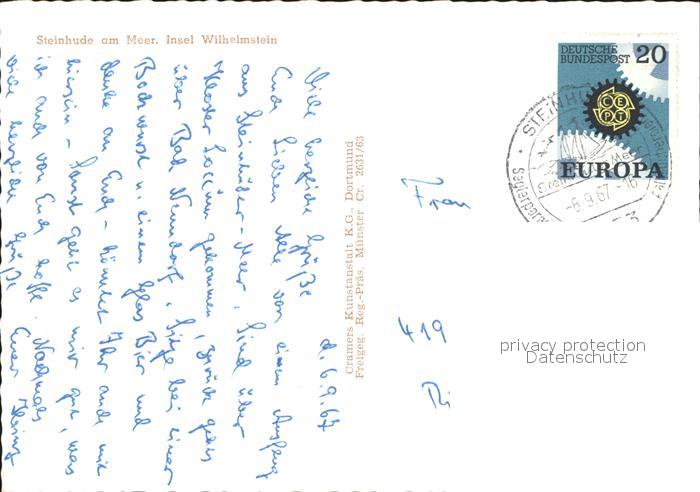 Steinhude am Meer. Insel Wilhelmstein
d. 6.9.67
Viele herzliche Grüße
Euch Lieben Alle von einem Ausflug
aus Steinhuder-Meer. Sind über
Kloster Loccum gekommen, zurück gehts
über Bad Nenndorf. Sitze bei einer
Bockwurst u. einem Glas Bier und
denke an Euch - könntet Ihr auch mit
hiersein - Sonst geht es mir gut, was
ich auch von Euch hoffe. Nochmals
viele herzliche Grüße Euer Heinz
Cramers Kunstanstalt K.G., Dortmund
Freigeg. Reg.-Präs. Münster Cr. 2631/63
DEUTSCHE
BUNDESPOST 20
CEPT
EUROPA
STEINHU
-6.9.67-16
Frau
419
privacy protection
Datenschutz